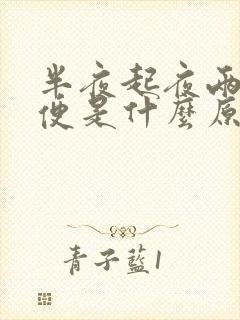 半夜起夜兩
便是什麼原
青子藍1